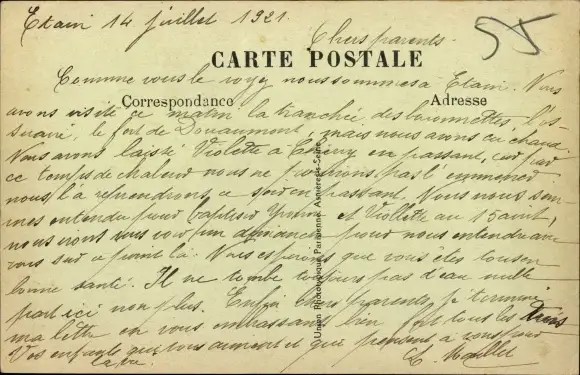 Etain 14 juillet 1921.
55
Chers parents.
CARTE POSTALE
Comme vous le voyez nous sommes à Etain. Nous
Correspondance
Adresse
avons visité ce matin la tranchée des baïonnettes, l'os-
suaire, le fort de Douaumont, mais nous avons eu chaud.
Nous avons laissé Violette à en passant, car par
ce temps de chaleur nous ne pouvions pas l'emmener
nous l'a reprendrons ce soir en passant. Nous nous som-
mes entendu pour baptiser Yvonne et Violette au 15 août,
nous irons vous voir un dimanche pour nous entendre avec
vous sur ce point là. Nous espérons que vous êtes tous en
bonne santé. Il ne tombe toujours pas d'eau nulle
part ici non plus. Enfin chers parents, je termine
ma lettre en vous embrassant bien fort tous les trois
Vos enfants qui vous aiment et qui pensent à vous pour
la vie.
Union Photographique Parisienne, Asnières-Seine